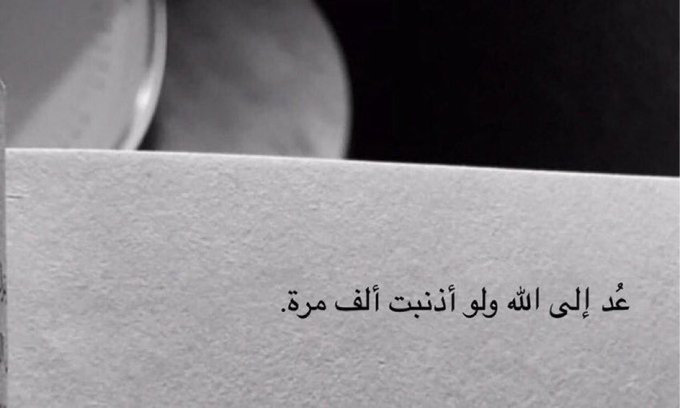 عُد إلى الله ولو أذنبت ألف مرة.